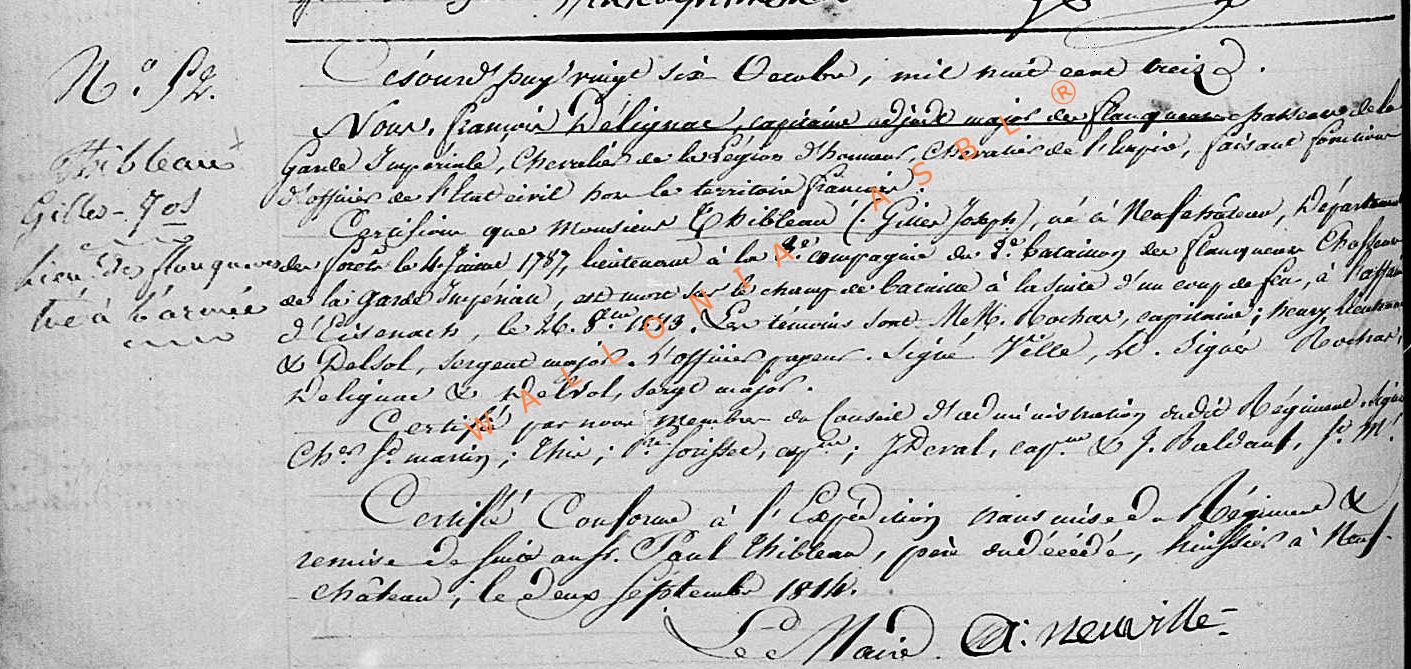 N.° 52.
Thibleau
Gilles-Jos
Lieu. de flanqueurs
tué à l'armée
Cejourd'huy vingt six Octobre, mil huit cent treize.
Nous, françois Délignac, capitaine adjud. major des flanqueurs chasseurs de la
Garde Impériale, Chevalier de la Légion d'honneur, Chevalier de l'Empire, faisant fonctions
d'officier de l'Etat civil hors le territoire françois.
Certifions que Monsieur Thibleau (Gilles Joseph), né à Neufchâteau, Département
des forets le 4 1787, lieutenant à la 2e. compagnie du 2e. bataillon des flanqueurs Chasseurs
de la Garde Impériale, est mort sur le champ de bataille à la suite d'un coup de feu, à l'affaire
d'Eisenach, le 26. 8bre 1813. Les témoins sont M.M. Rochas, capitaine; henry lieutenant
& Delsol, sergent major. L'officier payeur. Signé Ville, Signer Rochas,
Delignac & Delsol, sergt major.
Certifié par nous membres du Conseil d'administration dudit Régiment. Signé
martin; cape; J. Deval, cape. & J.
Certifié Conforme à l'Expédition transmise du Régiment &
remise de suite au Sr. Paul Thibleau, père du décédé, huissier à Neuf-
château, le deux Septembre 1814.
Le Maire. A: Neuville
WALLONIA ASBL ®